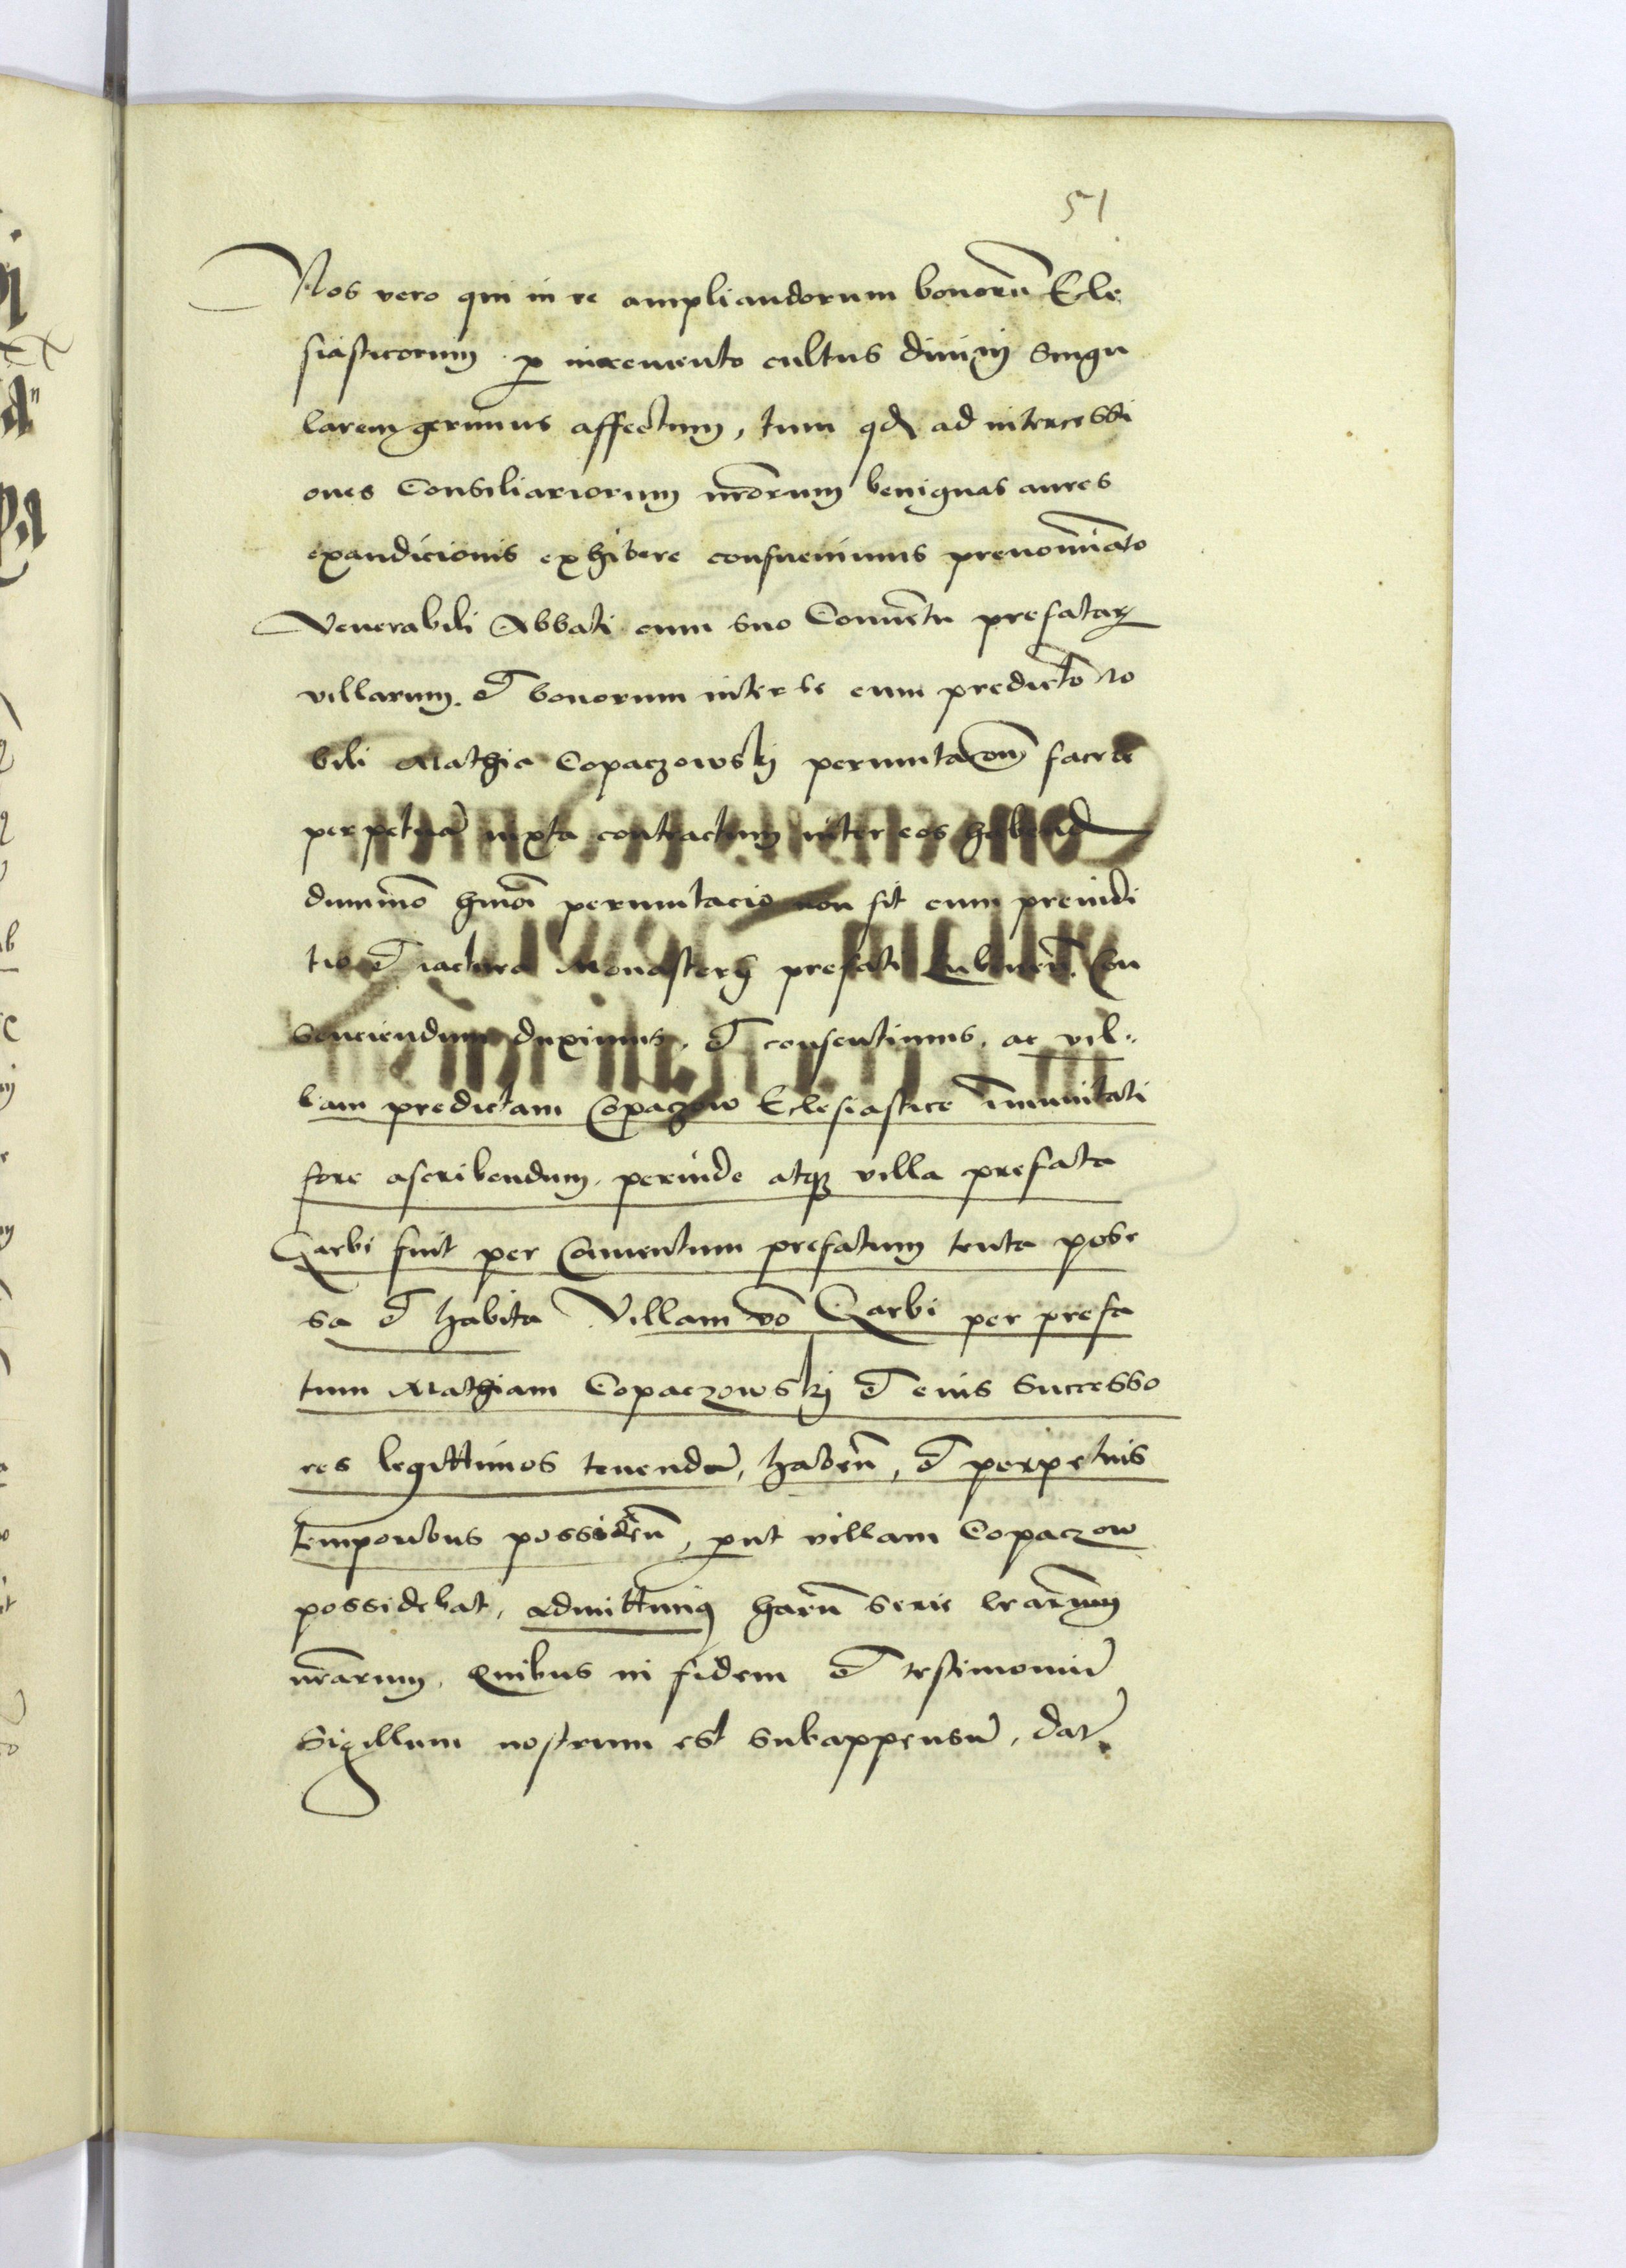 51
Nos vero qui in re ampliandorum bonorū Ecle
siasticorum p incremento cultus diuinj Singu
larem gerimus affectum, tum qd ad intercessi
ones Consiliariorum nrōrum benignas aures
exaudicionis exhibere consueuimus prenomīato
Venerabili Abbati cum suo Conuētu prefatarꝫ
villarum et bonorum inter se cum predicto No
bili Mathia Copaczowskj permutacōm facere
perpetuā iuxta contractum inter eos habend
dummō hmōi permutacio non sit cum preiudi
tio et iactura Monasterij prefati Lubineñ. Con
senciendum duximus, et consentimus, ac vil
lam predictam Copaczow Eclesiastice īmunitati
fore ascribendum, perinde atqꝫ villa prefata
Garbi fuit per Conuentum prefatum tenta poses
sa et habita Villam vō Garbi per prefa
tum Mathiam Copaczowskj et eius Successo
res legittimos tenendā, habeñ, et perpetuis
temporibus possideñ, put villam Copaczow
possidebat, admittimꝯ harū serie lrārum
nrārum, Quibus in fidem et testimoniū
Sigillum nostrum est subappensū, Dat